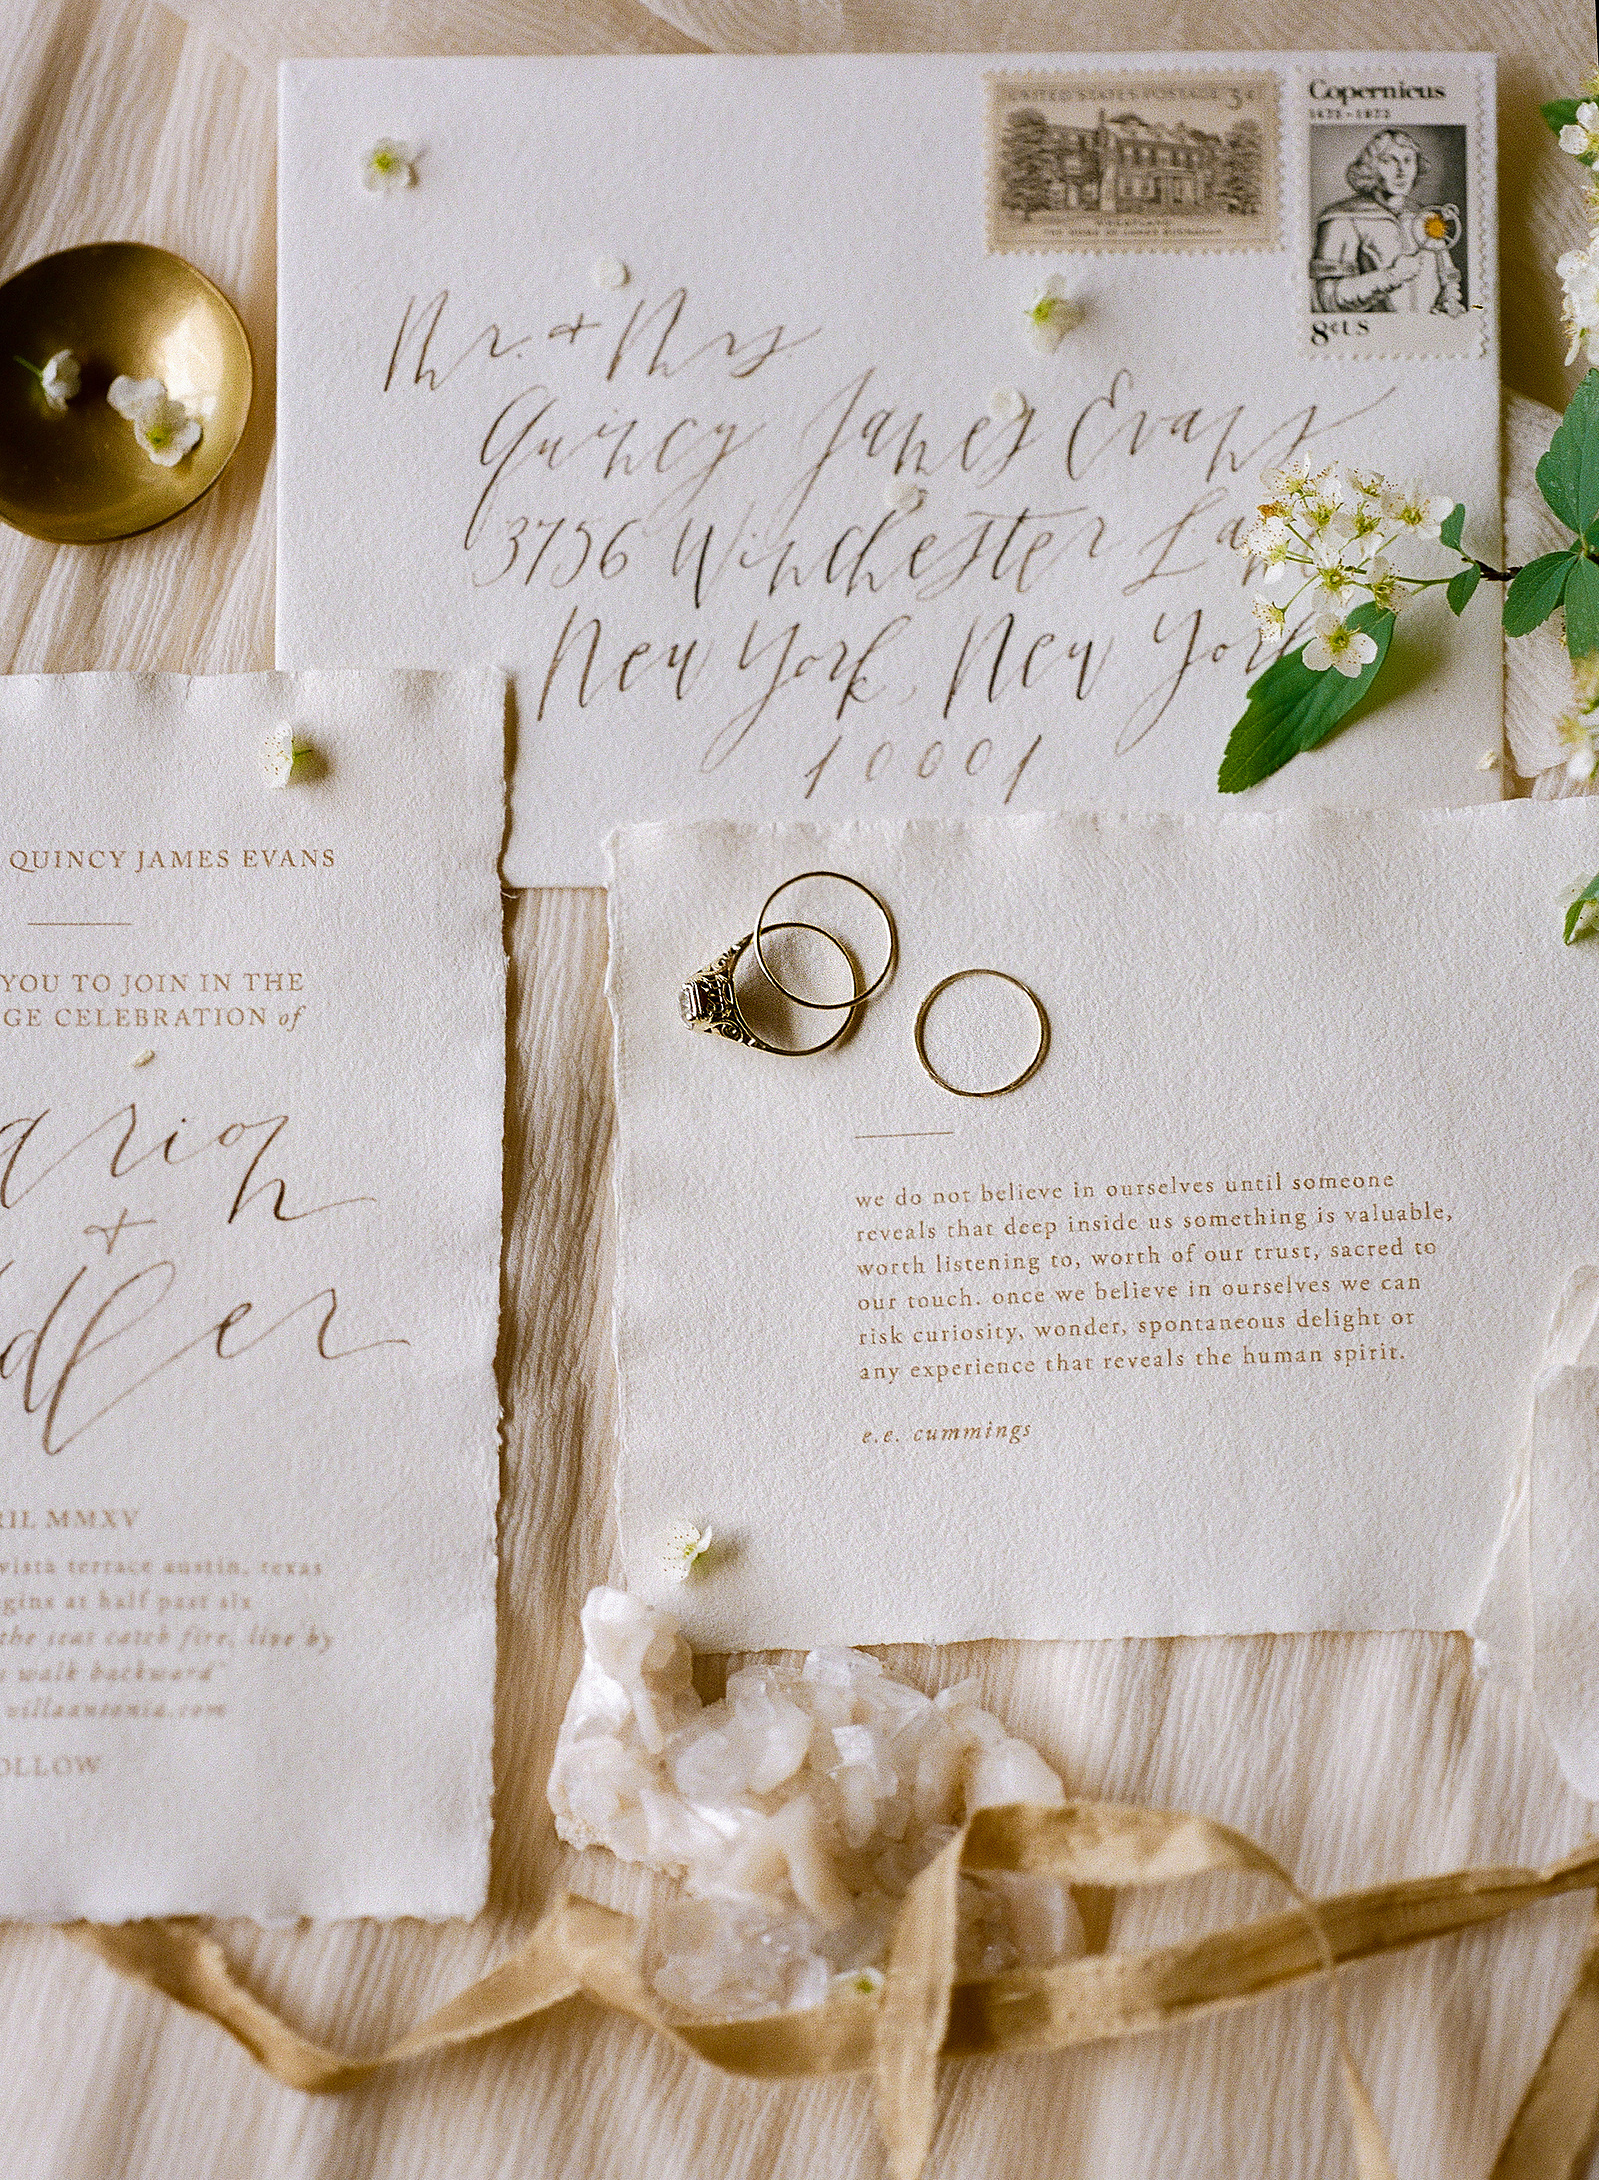 UNITED STATES POSTAGE 3¢
THE HOME OF JAMES BUCHANAN
Copernicus
1473-1973
8¢US
Mr. + Mrs.
Quincy James Evans
3756 Winchester Lan
New York, New York
10001
QUINCY JAMES EVANS
YOU TO JOIN IN THE
GE CELEBRATION of
arion
+
dler
RIL MMXV
vista terrace austin, texas
gins at half past six
the seas catch fire, live by
walk backward"
villaantonia.com
OLLOW
we do not believe in ourselves until someone
reveals that deep inside us something is valuable,
worth listening to, worth of our trust, sacred to
our touch. once we believe in ourselves we can
risk curiosity, wonder, spontaneous delight or
any experience that reveals the human spirit.
e.e. cummings